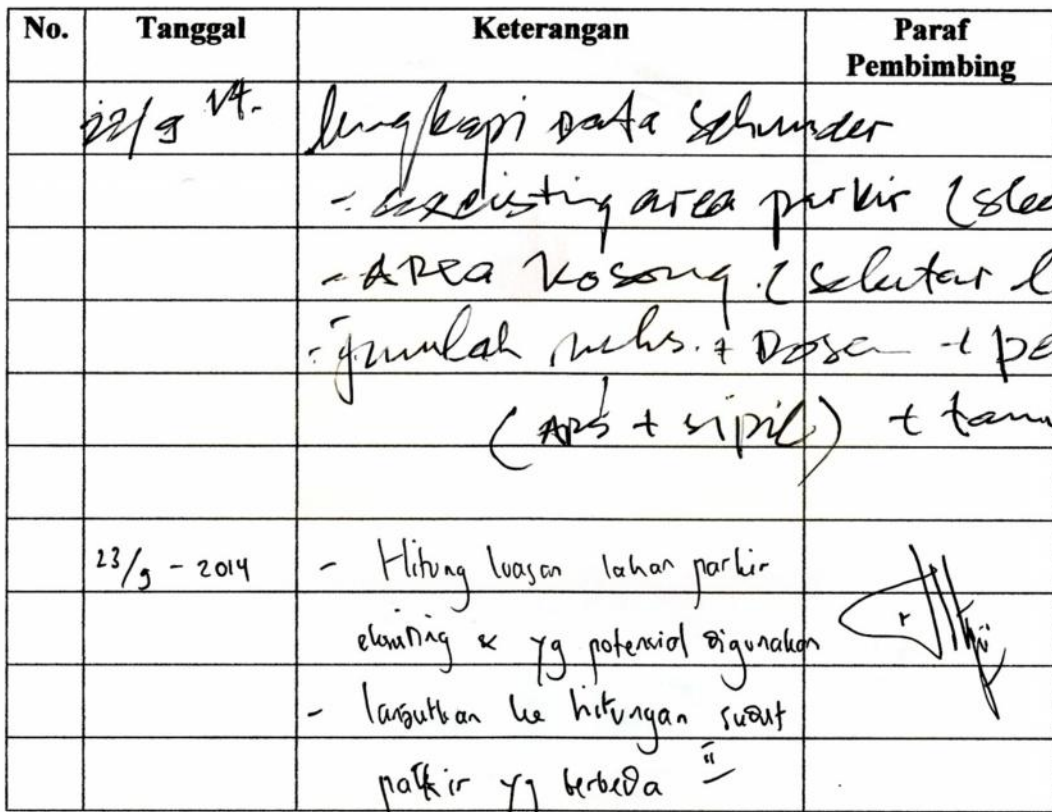 No. Tanggal Keterangan Paraf Pembimbing
22/9 14. lengkapi Data Sekunder
- exsisting area parkir (
- AREA Kosong. (sekitar
- jumlah mhs. + Dosen + pe
(ARS + sipil) + tamu
23/9 - 2014 - Hitung luasan lahan parkir
eksisting & yg potensial digunakan
- lanjutkan ke hitungan sudut
parkir yg berbeda